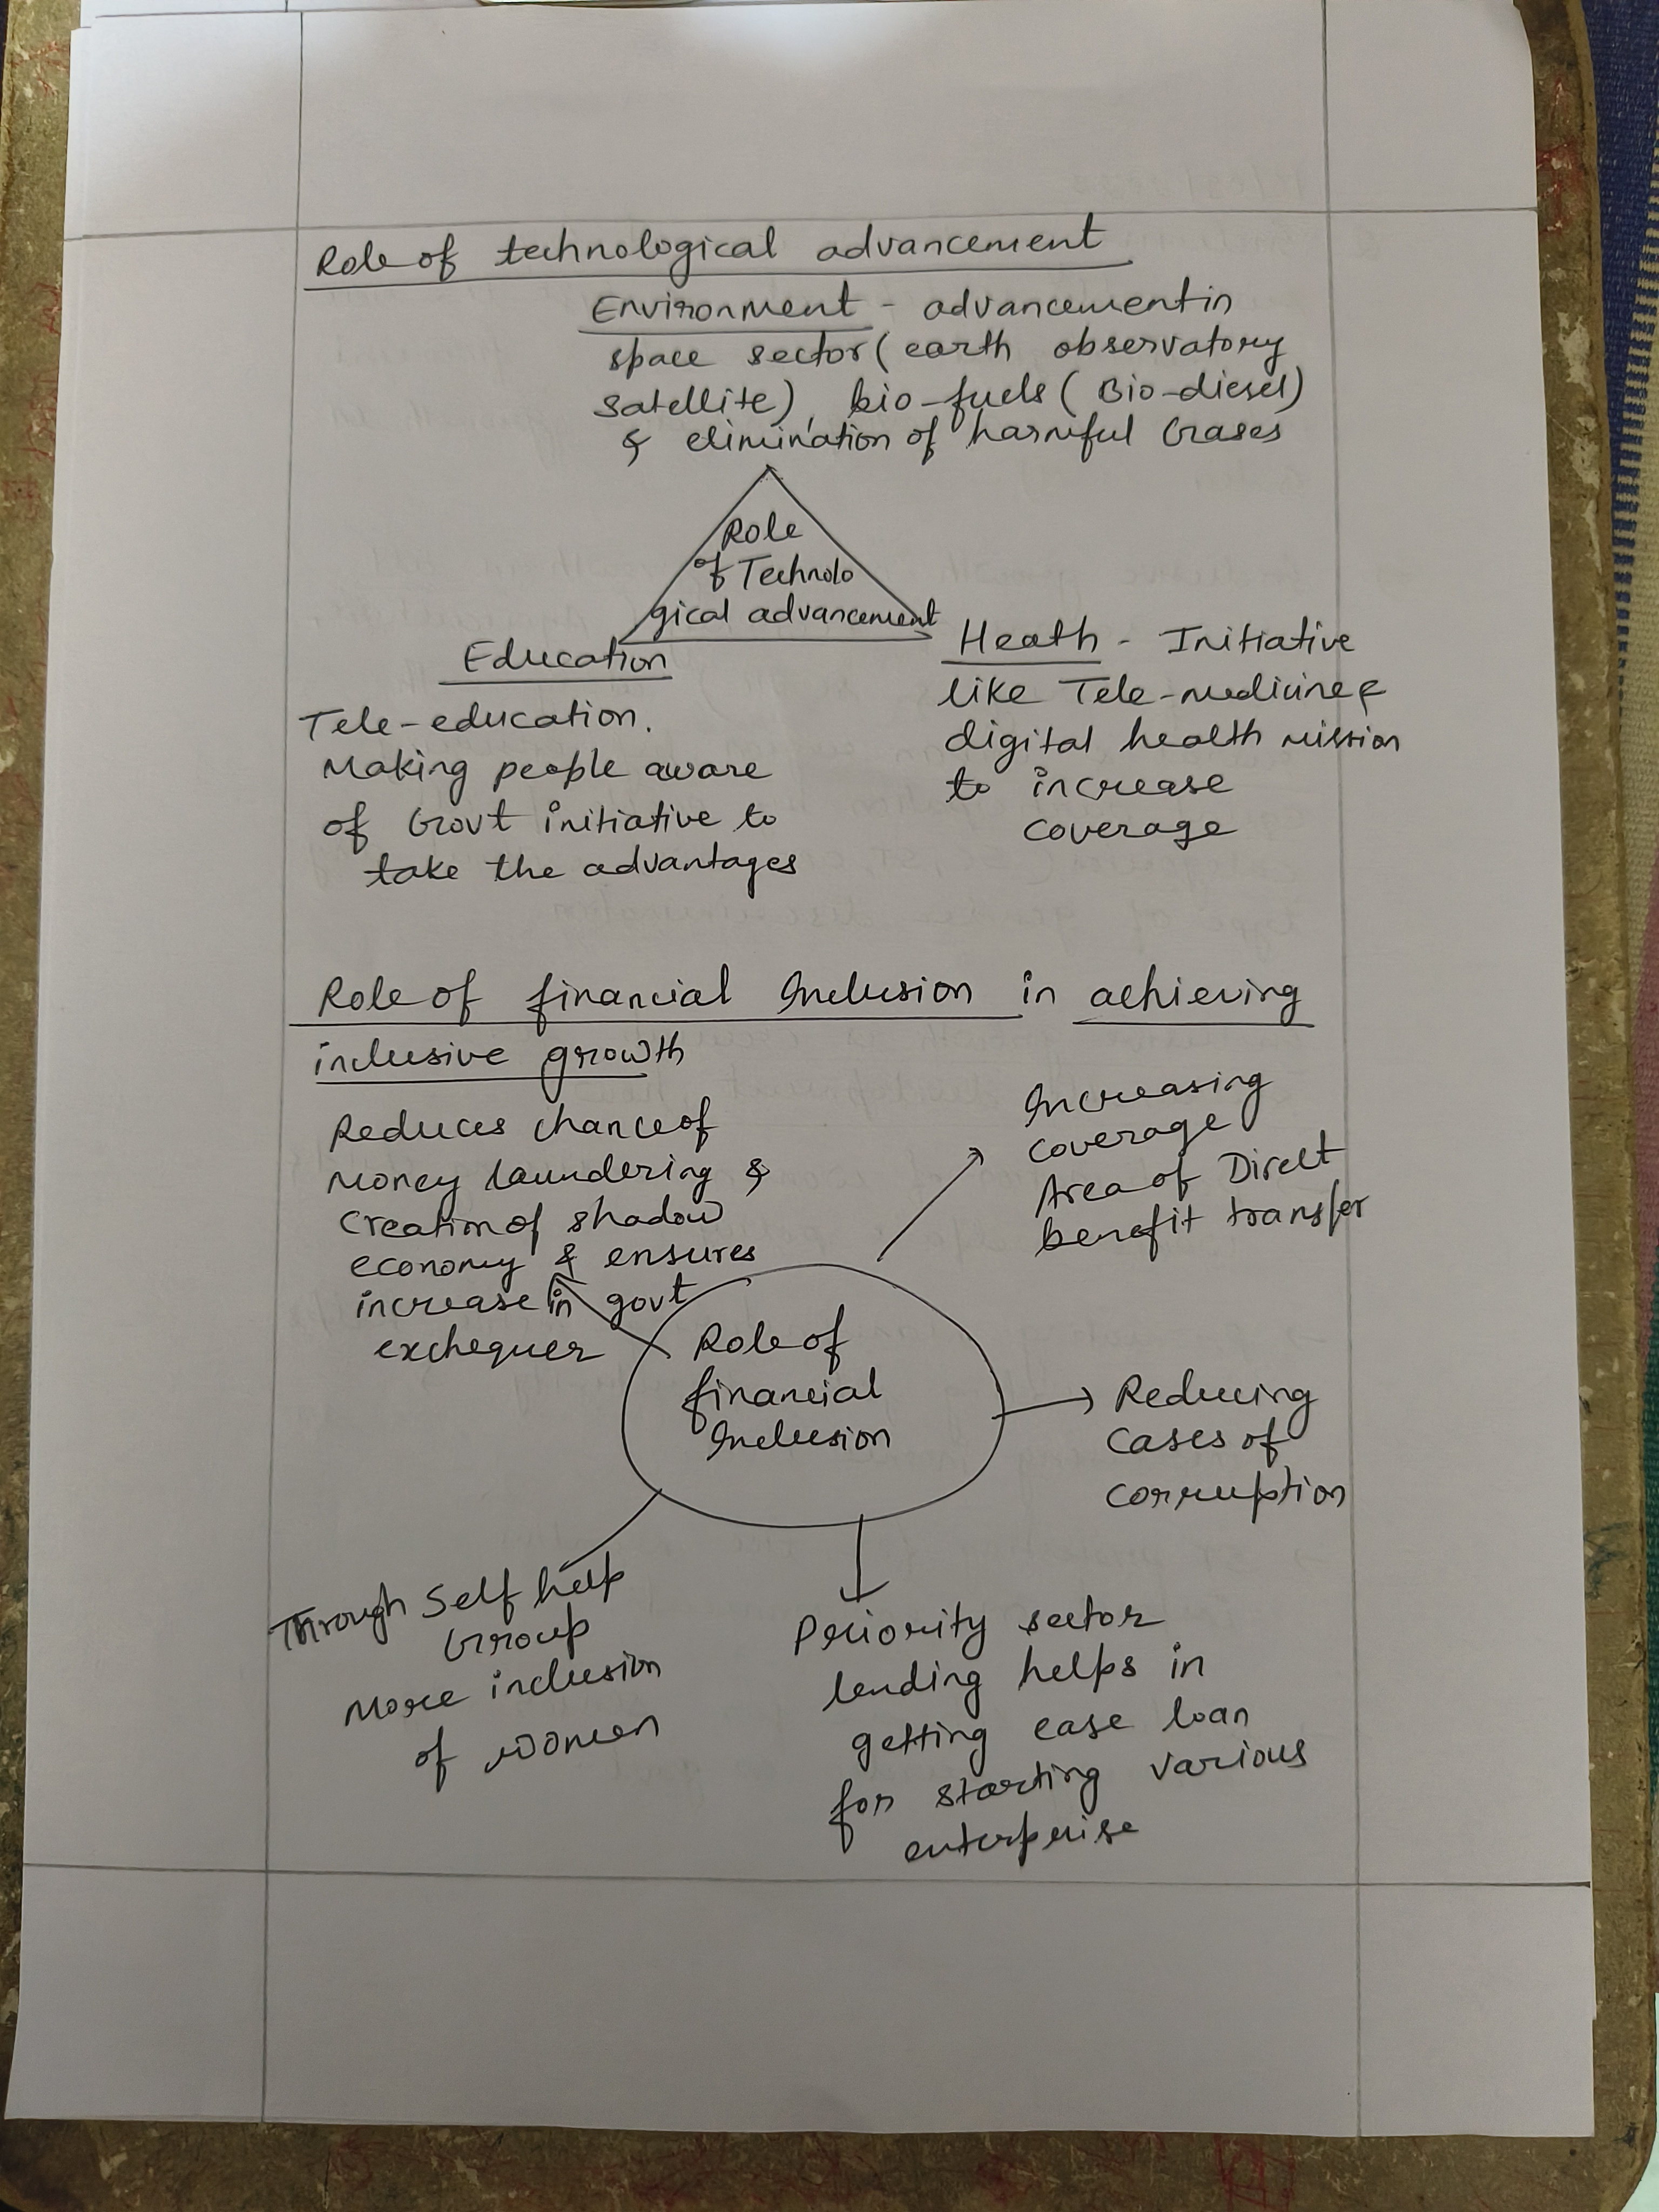 Role of technological advancement
Environment - advancement in
space sector (earth observatory
satellite), bio-fuels (Bio-diesel)
& elimination of harmful Gases
Role
of Technolo
gical advancement
Education
Tele-education.
Making people aware
of Govt initiative to
take the advantages
Heath - Initiative
like Tele-medicine &
digital health mission
to increase
coverage
Role of financial Inclusion in achieving
inclusive growth
Reduces chance of
money laundering &
creation of shadow
economy & ensures
increase in govt
exchequer
Increasing
coverage
Area of Direct
benefit transfer
Role of
financial
Inclusion
Reducing
cases of
corruption
Through Self help
Group
More inclusion
of women
Priority sector
lending helps in
getting ease loan
for starting various
enterprise